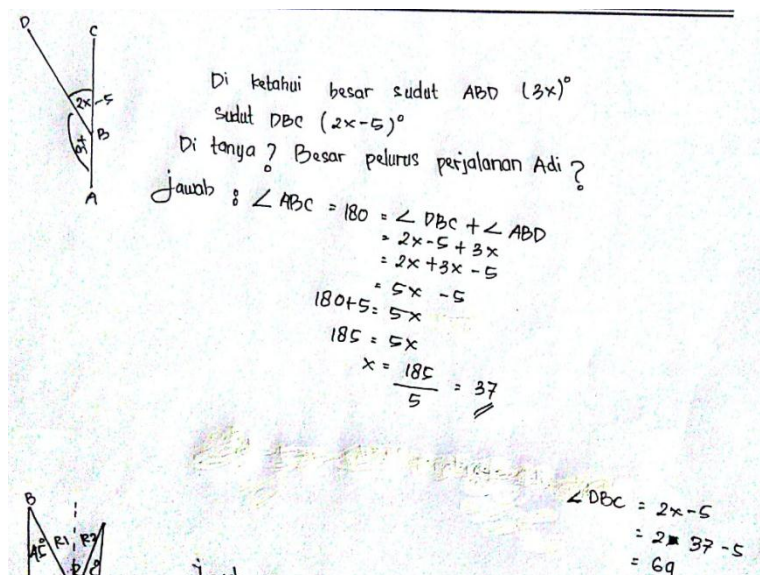 D
C
2x-5
B
A
Di ketahui besar sudut ABD (3x)°
Sudut DBC (2x-5)°
Di tanya? Besar pelurus perjalanan Adi?
Jawab : ∠ ABC = 180 = ∠ DBC + ∠ ABD
= 2x-5 + 3x
= 2x+3x - 5
= 5x - 5
180+5 = 5x
185 = 5x
x = 185
5
= 37
∠ DBC = 2x-5
= 2 37 -5
= 69
B
R1
R2